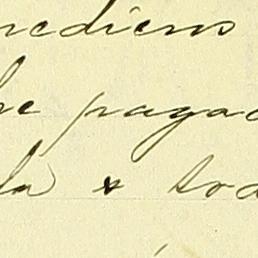 rediens
he pagad
la & tod